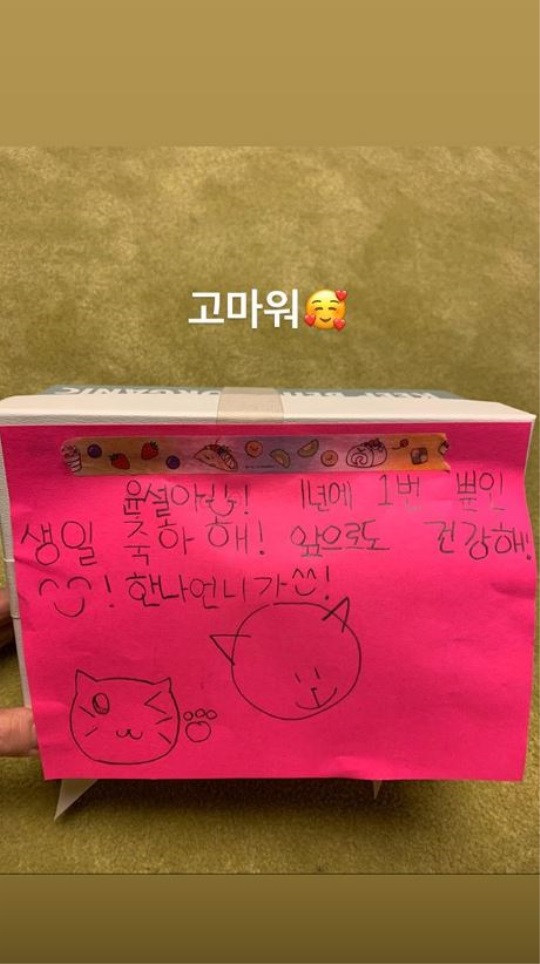 고마워🥰
윤설아! 1년에 1번 뿐인
생일 축하해! 앞으로도 건강해!
! 한나언니가!